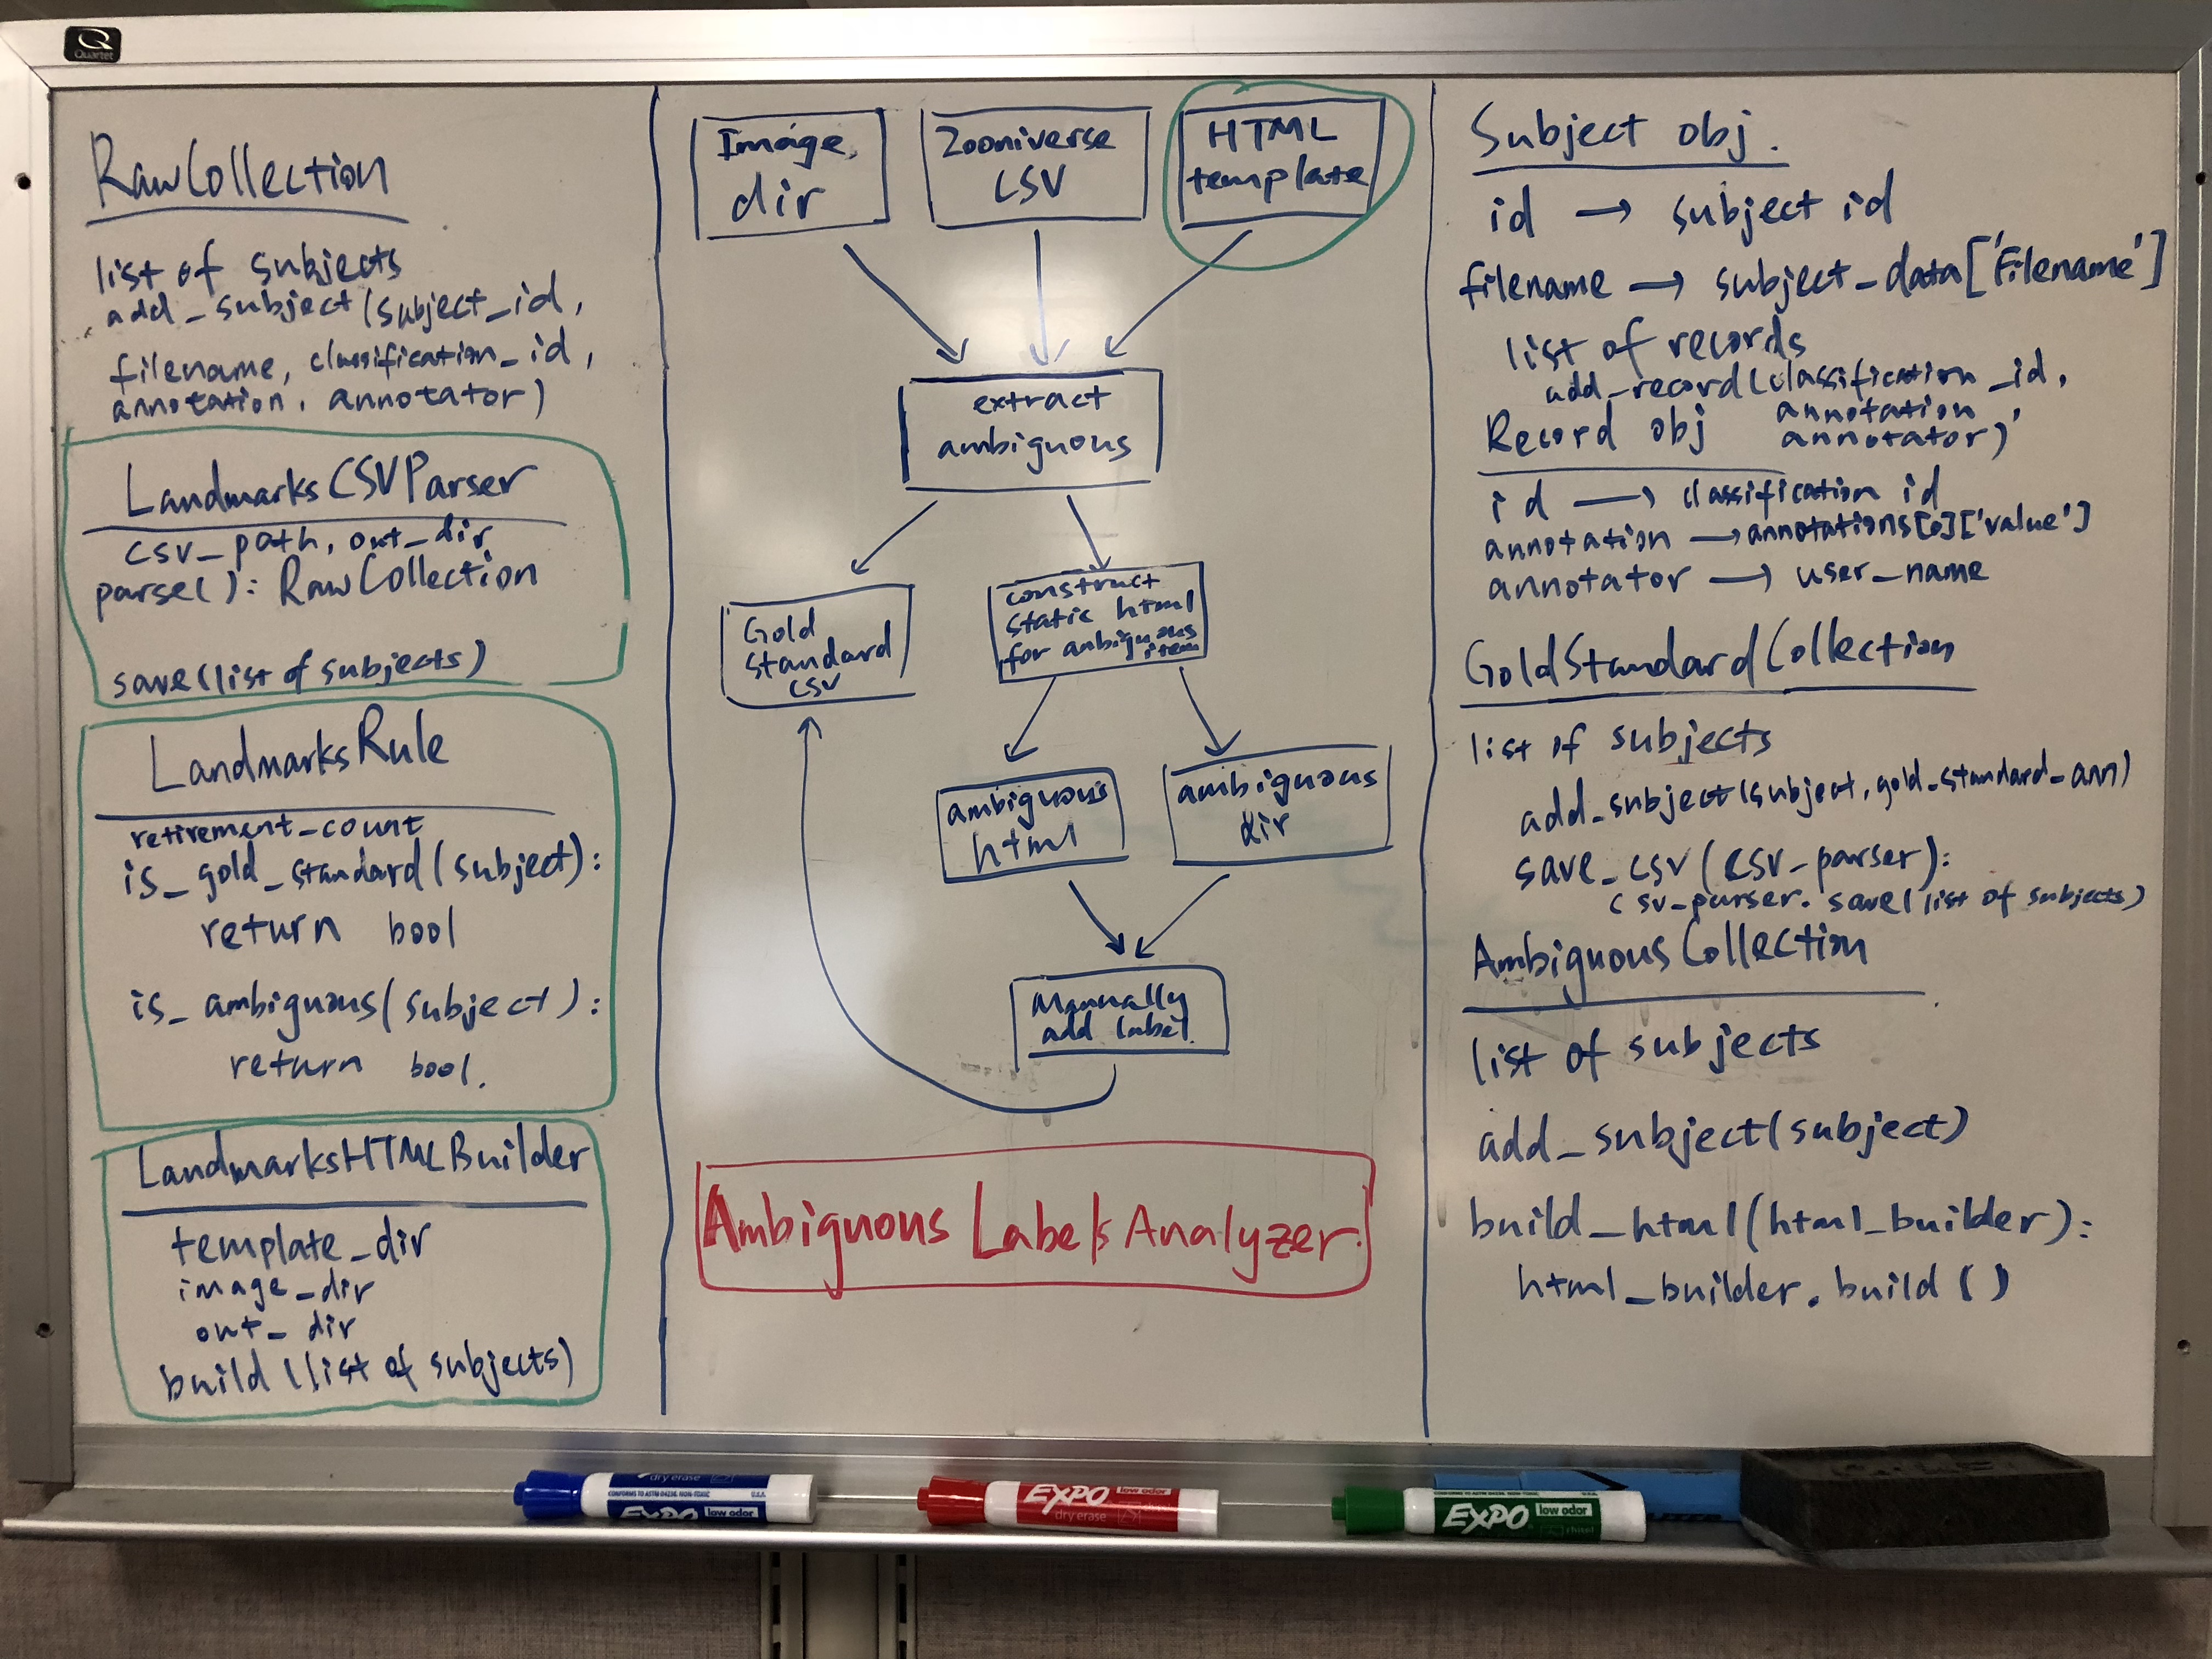 Q
Quartet
RawCollection
list of subjects
add_subject(subject_id,
filename, classification_id,
annotation, annotator)
LandmarksCSVParser
csv_path, out_dir
parse(): RawCollection
save(list of subjects)
LandmarksRule
retirement_count
is_gold_standard(subject):
return bool
is_ambiguous(subject):
return bool.
LandmarksHTMLBuilder
template_dir
image_dir
out_dir
build(list of subjects)
Image
dir
Zooniverse
CSV
HTML
template
extract
ambiguous
Gold
standard
CSV
construct
static html
for ambiguous
item
ambiguous
html
ambiguous
dir
Manually
add label.
Ambiguous Labels Analyzer.
Subject obj.
id → subject id
filename → subject_data['Filename']
list of records
add_record(classification_id,
annotation,
annotator)
Record obj
id → classification id
annotation → annotations[0]['value']
annotator → user_name
GoldStandardCollection
list of subjects
add_subject(subject, gold_standard_ann)
save_csv(csv_parser):
csv_parser.save(list of subjects)
AmbiguousCollection
list of subjects
add_subject(subject)
build_html(html_builder):
html_builder.build()
dry erase
CONFORMS TO ASTM D4236. NON-TOXIC
U.S.A.
EXPO low odor
EXPO low odor
dry erase
EXPO low odor